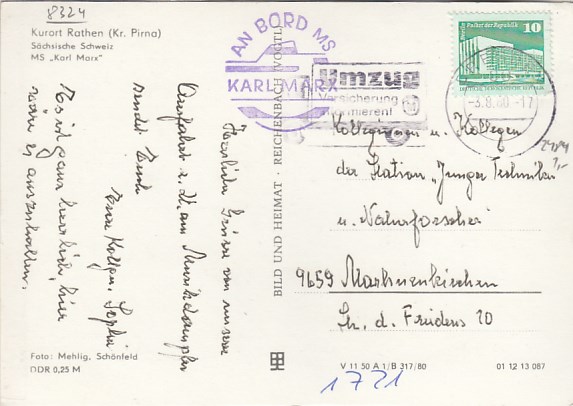 8324
Kurort Rathen (Kr. Pirna)
Sächsische Schweiz
MS „Karl Marx"
AN BORD MS
KARL MARX
Umzug
Versicherung
informieren!
10
Palast der Republik
-3.8.80.-17
Herzliche Grüße von unserer
sendet Euch
Eure Kolln. Sophie
wäre es auszuhalten.
BILD UND HEIMAT · REICHENBACH (VOGTL)
Kolleginnen u. Kollegen
der Station „Junger Techniker
u. Naturforscher"
9659 Markneukirchen
Str. d. Friedens 20
Foto: Mehlig, Schönfeld
DDR 0,25 M
V 11 50 A 1/B 317/80
01 12 13 087
1721